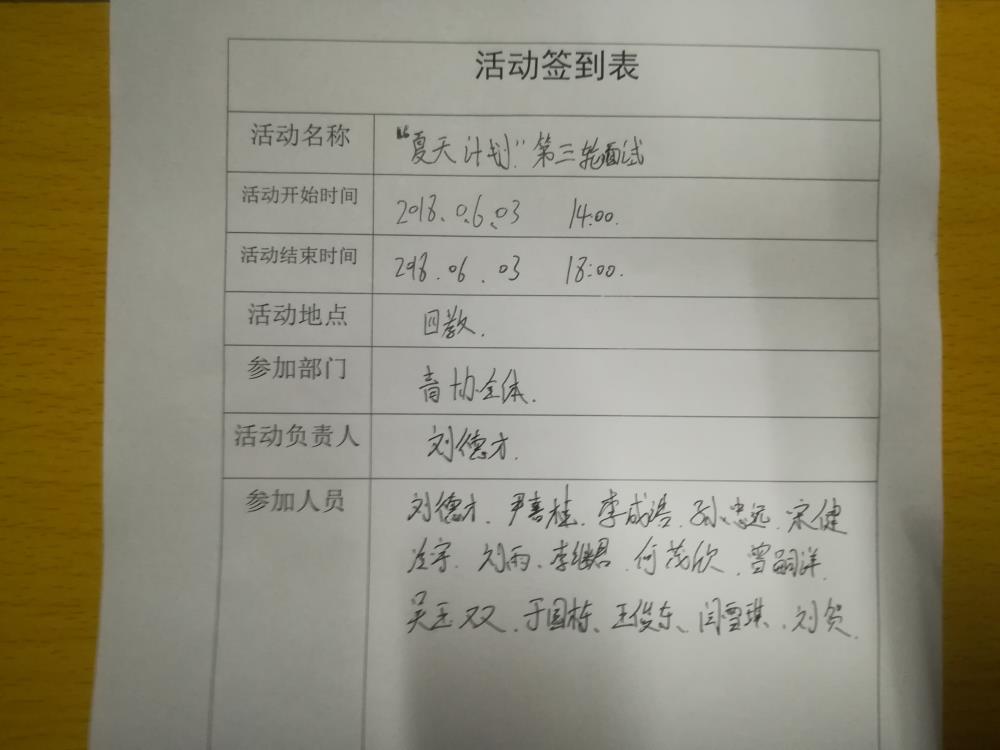 活动签到表
活动名称 “夏天计划”第三轮面试
活动开始时间 2018.06.03 14:00.
活动结束时间 2018.06.03 18:00.
活动地点 四教.
参加部门 青协全体.
活动负责人 刘德才.
参加人员 刘德才、尹喜桂、李成浩、孙忠远、宋健
刘雨、李继君、何茂欣、曾嗣洋
吴玉双、于国栋、王俊东、闫雪琪、刘贺